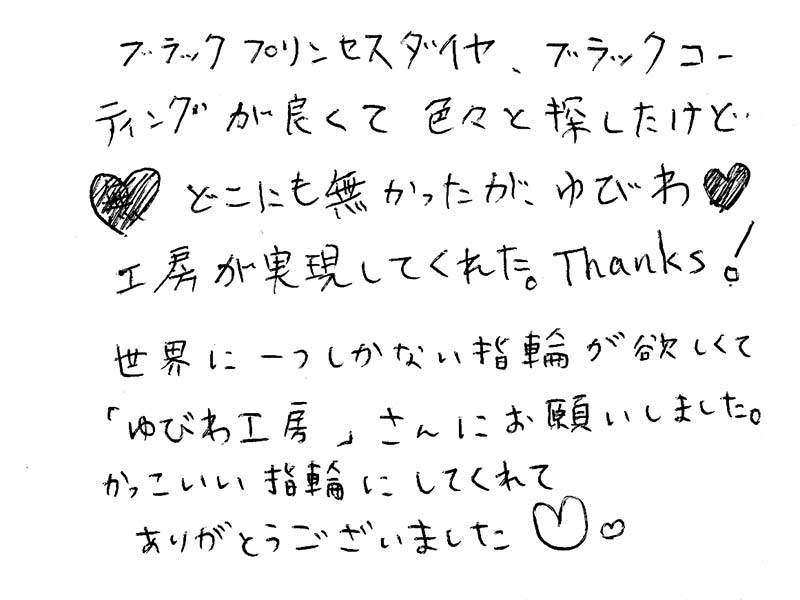 ブラックプリンセスダイヤ、ブラックコー
ティングが良くて 色々と探したけど
どこにも無かったが、ゆびわ
工房が実現してくれた。Thanks!
世界に一つしかない指輪が欲しくて
「ゆびわ工房」さんにお願いしました。
かっこいい指輪にしてくれて
ありがとうございました